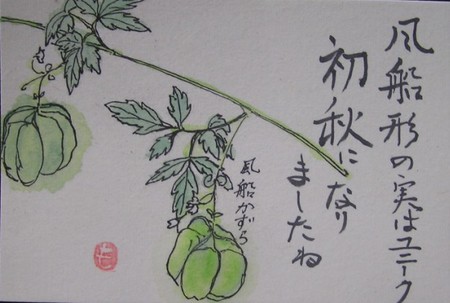 風船形の実はユニーク
初秋になり
ましたね
風船かずら